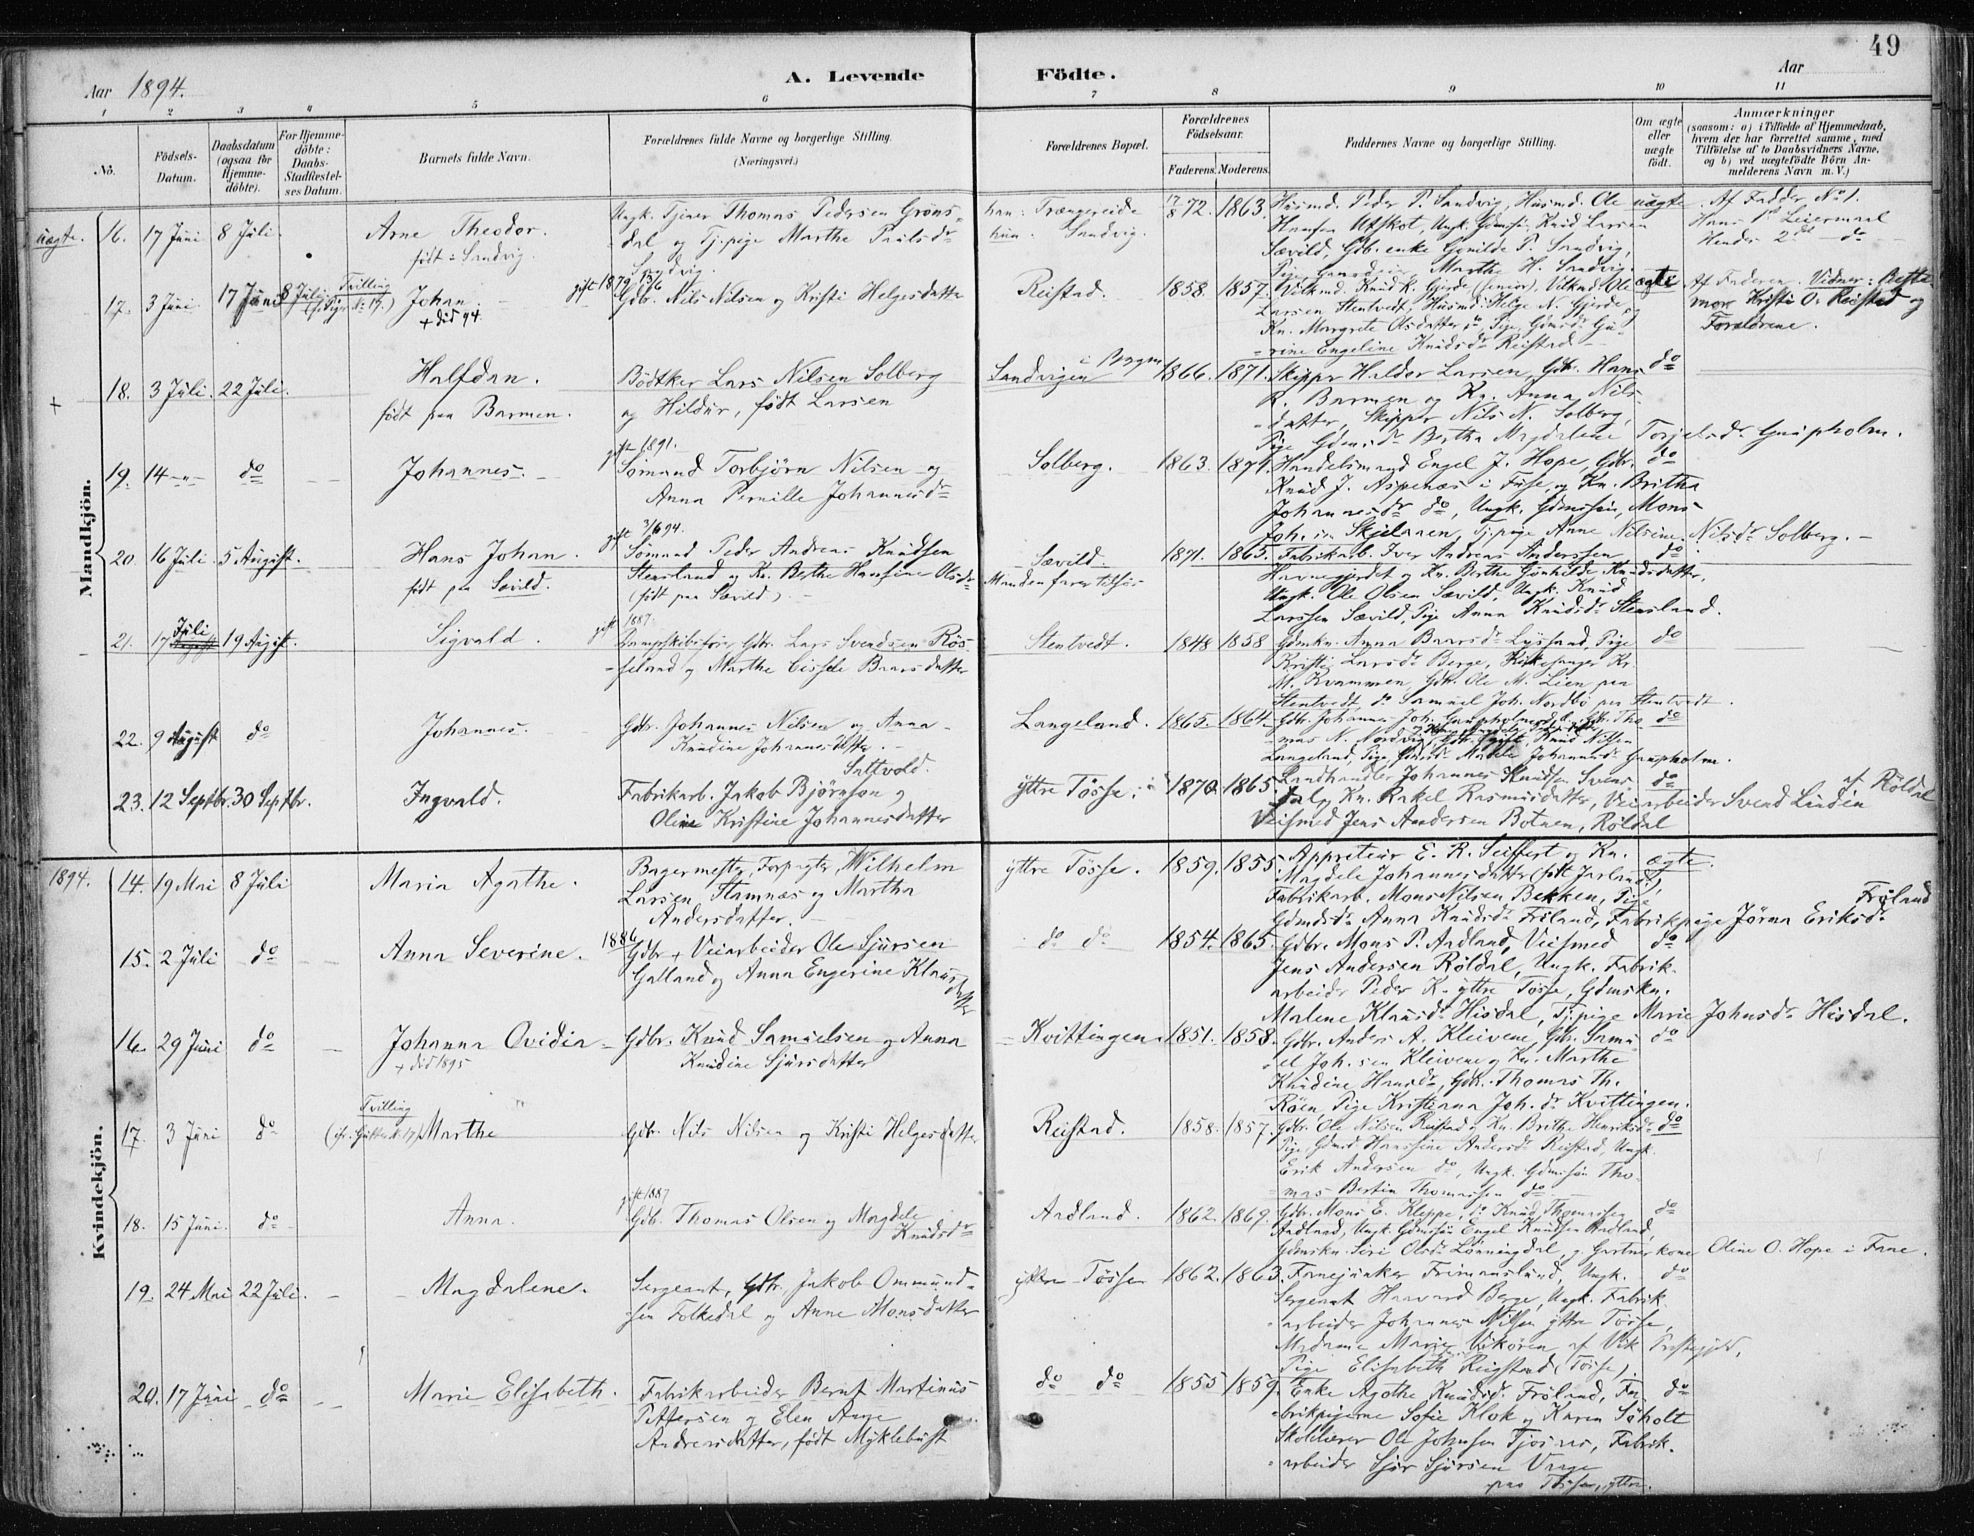 49
Aar 1894.
A. Levende Födte.
Aar
1 2 3 4 5 6 7 8 9 10 11
No.
Födsels-Datum.
Daabsdatum (ogsaa for Hjemme-döbte).
For Hjemme-döbte: Daabs-Stadfæstel-ses Datum.
Barnets fulde Navn.
Forældrenes fulde Navne og borgerlige Stilling.
(Næringsvei.)
Forældrenes Bopæl.
Forældrenes Födselsaar.
Faderens. Moderens.
Faddernes Navne og borgerlige Stilling.
Om ægte eller uægte födt.
Anmærkninger
(saasom: a) i Tilfælde af Hjemmedaab, hvem der har forrettet samme, med Tilföielse af to Daabsvidners Navne, og b) ved uægtefödte Börn An-melderens Navn m. V.)
Mandkjön.
uægte. 16. 17 Juni 8 Juli. Arne Theodor.
født: Sandvig.
Ungk. Tjener Thomas Pedersen Gröns-
dal og Tj.pige Marthe Paulsdr
Sandvig.
han: Trængereide
hun: Sandvig.
17/8 72. 1863.
Husmd. Peder P. Sandvig, Husmd. Ole
Hansen Utskot, Ungk. Gdmsön Knud Larsen
Sævild, Gdbr.enke Gunilde P. Sandvig,
Marthe H. Sandvig.
uægte. Af Fadder No 1.
Hans 1ste Leiermaal
Hendes 2det do
17. 3 Juni 17 Juni 8 Juli Tvilling
(cfr. Piger No 17.) Johan.
+ död 94.
gift 1879 Gdb. Nils Nilsen og Kristi Helgesdatter
Reistad. 1858. 1857.
Vilkmd. Knud K. Gjerde (senior), Vilkmd. Ole
Larsen Stentvedt, Husmd. Helge N. Gjerde,
Kn. Margrete Olsdatter do, Pige Gdmsdr Gu-
rine Engeline Knudsdr Reistad
ægte Af Faderen. Vidner: Beste-
mor Kristi O. Reistad og
Forældrene.
+ 18. 3 Juli. 22 Juli. Halfdan.
født paa Barmen.
Bödtker Lars Nilsen Solberg
og Hildur, født Larsen
Sandvigen i Bergen 1866. 1871.
Skipper Haldor Larsen, Gdb. Hans
R. Barmen og Kn. Anna Nils-
datter, Skipper Nils N. Solberg,
Pige Gdmsdr Bertha Magdalene Torjelsdr Gaupholm.
do
19. 14 -"- do Johannes.
gift 1891.
Sömand Torbjörn Nilsen og
Anna Pernille Johannesdr
Solberg. 1863. 1871.
Handelsmand Engel J. Hope, Gdbr.
Knud J. Aspenæs i Fuse og Kn. Britha
Johannesdr do, Ungk. Gdmssön, Mons
Joh.sen Skeilanen, Tj.pige Anne Nilsine Nilsdr Solberg.
do
20 16 Juli 5 August. Hans Johan.
født paa Sævild.
gift 3/6 94.
Sömand Peder Andreas Knudsen
Stensland og Kn. Berthe Hansine Olsdr
(født paa Sævild).
Sævild.
Manden farer tilsös
1871. 1865.
Fabrikarb. Iver Andreas Anderssen
Havnegjerdet og Kn. Berthe Gunhilde Knudsdatter,
Ungk. Ole Olsen Sævild, Ungk. Knud
Larssen Sævild, Pige Anna Knudsdr Stensland.
do
21. 17 Juli 19 August. Sigvald.
gift 1887.
Dampskibsförer, Gdbr. Lars Svendsen Rös-
seland og Marthe Cissele Baarsdatter
Stentvedt. 1848 1858
Gdmkn. Anna Baarsdr Lyssand, Pige
Kristi Larsdr Berge, Kirkesanger Kr.
M. Kvammen, Gdb. Ole M. Lien paa
Stentvedt, do Samuel Joh. Nordbö paa Stentvedt.
do
22. 9 August do Johannes.
Gdbr. Johannes Nilsen og Anna
Knudine Johannesdatter.
Langeland. 1865. 1864.
Gdb. Johannes Joh. Gaupholm, Gdbr. Tho-
mas N. Nordvig, Knud Nilsen
Langeland, Pige Gdmsdr Malene Johannesdr Gaupholm.
do
23. 12 Septbr. 30 Septbr. Ingvald.
Fabrikarb. Jakob Björnson Saltvold. og
Oline Kristine Johannesdatter
yttre Tösse. 1870. 1865
Landhandler Johannes Knudsen Svens-
dal og Kn. Rakel Rasmusdatter, Veiarbeider Svend Lindin af Röldal
Veismed Jens Andersen Botnen, Röldal
do
Kvindekjön.
1894. 14. 19 Mai 8 Juli Maria Agathe.
Bagermester, Forpagter Wilhelm
Larsen Stamnæs og Martha
Andersdatter.
yttre Tösse. 1859. 1855.
Appreteur E. R. Seiffert og Kn.
Magdele Johannesdatter (født Jarland),
Fabrikarb. Mons Nilsen Bekken, Pige
Gdmdsdr Anna Knudsdr Fröland, Fabrikpige Jörna Eriksdr Fröland
ægte.
15. 2 Juli do Anna Severine.
1886 Gdbr + Veiarbeider Ole Sjursen
Galland og Anna Engerine Klausdatter
do do 1854. 1865.
Gdbr. Mons P. Aadland, Veismed
Jens Andersen Röldal, Ungk. Fabrik-
arbeider Peder K. yttre Tösse, Gdmskn.
Malene Klausdr Hisdal, Tj.pige Marie Johnsdr Hisdal.
do
16. 29 Juni do Johanna Ovidia
+ död 1895
Gdbr. Knud Samuelsen og Anna
Knudine Sjursdatter
Kvittingen. 1851. 1858.
Gdbr. Anders A. Kleivene, Gdb. Samu-
el Joh.sen Kleivene og Kn. Marthe
Knudine Hansdr, Gdb. Thomas Th.
Röen, Pige Kristianna Joh.dr Kvittingen.
do
17. 3 Juni do Tvilling
(cfr. Gutter No 17.) Marthe
Gdb. Nils Nilsen og Kristi Helgesdatter
Reistad. 1858. 1857.
Gdbr. Ole Nilsen Reistad og Kn. Brithe Henriksdr
Pige Gdmsd Hanssine Andersdr Reistad, Ungk.
Erik Andersen do, Ungk. Gdmssön Tho-
mas Bertin Thomassen do
do
18. 15 Juni. do Anna.
gift 1887
Gdb. Thomas Olsen og Magdele
Knudsdr
Aadland. 1862. 1869.
Gdb. Mons E. Kleppe, do Knud Thomassen
Aadland, Ungk. Gdmssön Engel Knudsen Aadland,
Gdmskn. Siri Olsdr Lönningdal, og Gartnerkone Oline O. Hope i Fane.
do
19. 24 Mai 22 Juli. Magdalene.
Sergeant, Gdb. Jakob Ommund-
sen Folkedal og Anne Monsdatter
yttre Tösse 1862. 1863.
Fanejunker Frimanslund, Ungk.
Sergeant Haavard Berge, Ungk. Fabrik-
arbeider Johannes Nilsen yttre Tösse,
Madame Marie Vikören af Vik Præstegjeld,
Pige Elisabeth Reigstad (Tösse).
do
20. 17 Juni do Marie Elisabeth.
Fabrikarbeider Bernt Martinus
Pettersen og Elen Aage
Andreasdatter, født Myklebust
do do 1855 1859.
Enke Agathe Knudsd. Fröland, Fa-
brikpigerne Sofie Klok og Karen Söholt
Skolelærer Ole Johnsen Tjosaas, Fabrik-
arbeider Sjur Sjursen Vaage
paa Tösse, yttre.
do